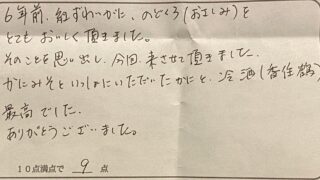 6年前、紅ずわいがに、のどくろ(おさしみ)を
とてもおいしく頂きました。
そのことを思い出し、今回、来させて頂きました。
かにみそといっしょにいただいたかにと、冷酒(香住鶴)
最高でした。
ありがとうございました。
10点満点で 9 点